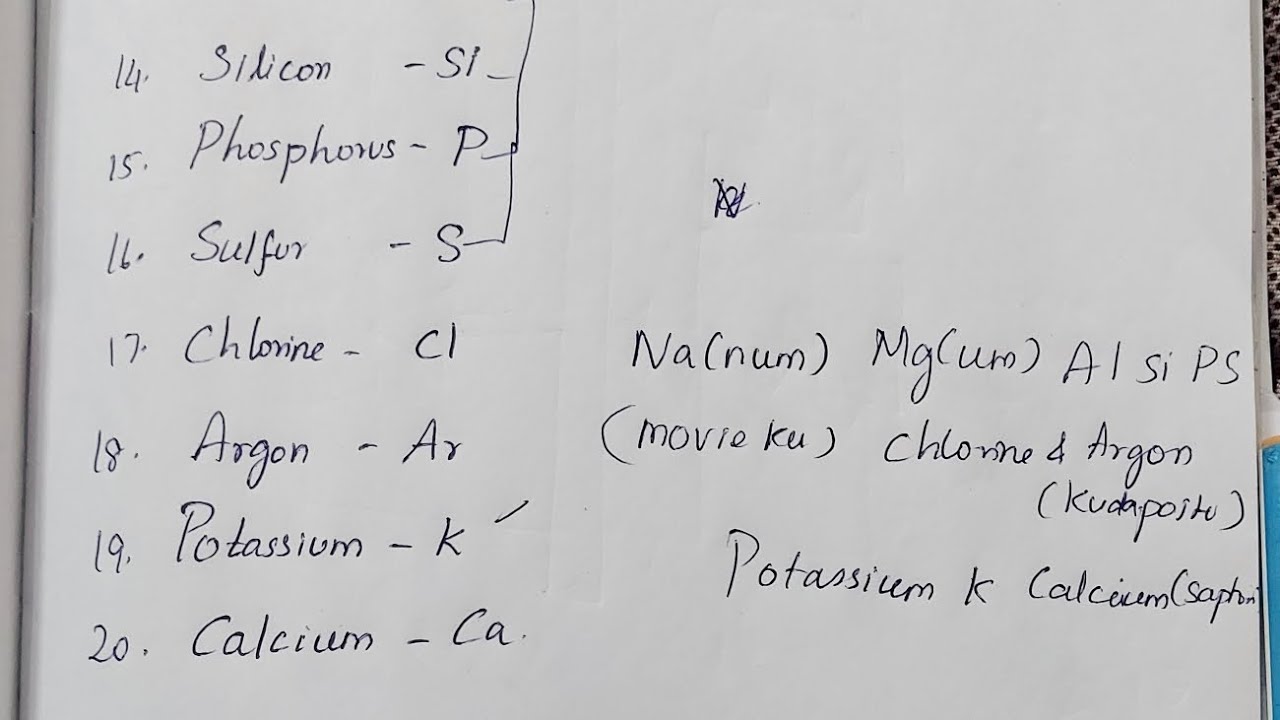 14. Silicon - Si
15. Phosphorus - P
16. Sulfur - S
17. Chlorine - Cl
18. Argon - Ar
19. Potassium - K
20. Calcium - Ca.
Na(num) Mg(um) Al Si PS
(movie ku) Chlorine & Argon
(kudaposite)
Potassium K Calcium(Sapton